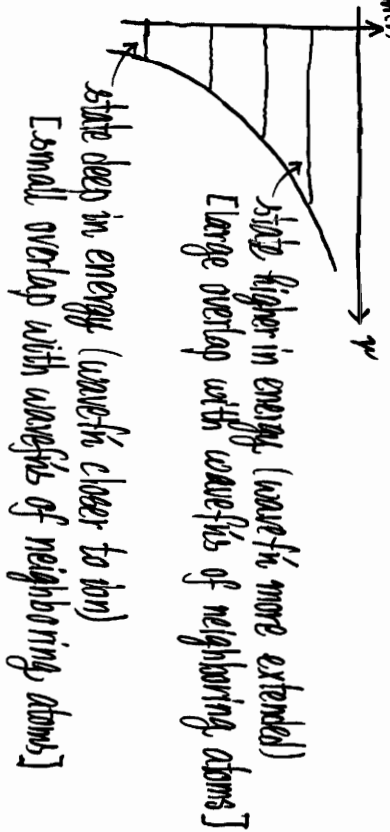 r
state higher in energy (wavefn more extended)
[large overlap with wavefn's of neighboring atoms]
state deep in energy (wavefn closer to ion)
[small overlap with wavefn's of neighboring atoms]